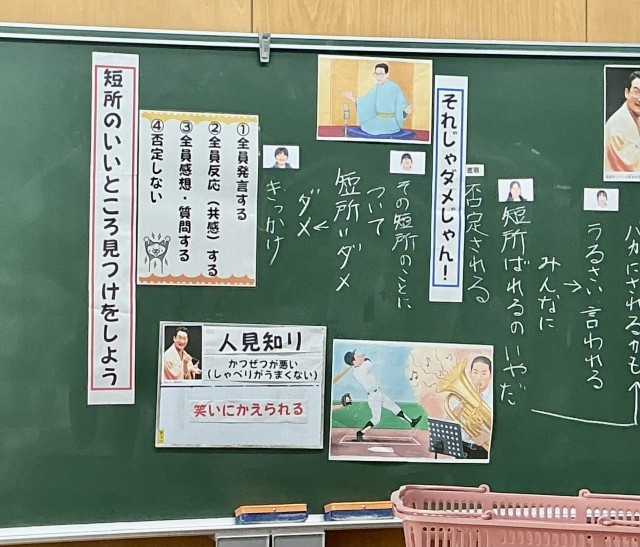 バカにされるかも
うるさい
→言われる
みんなに
短所ばれるのいやだ
否定される
それじゃダメじゃん!
その短所のことに
ついて
短所=ダメ
↓
ダメ
きっかけ
①全員発言する
②全員反応(共感)する
③全員感想・質問する
④否定しない
短所のいいところ見つけをしよう
人見知り
かつぜつが悪い
(しゃべりがうまくない)
笑いにかえられる